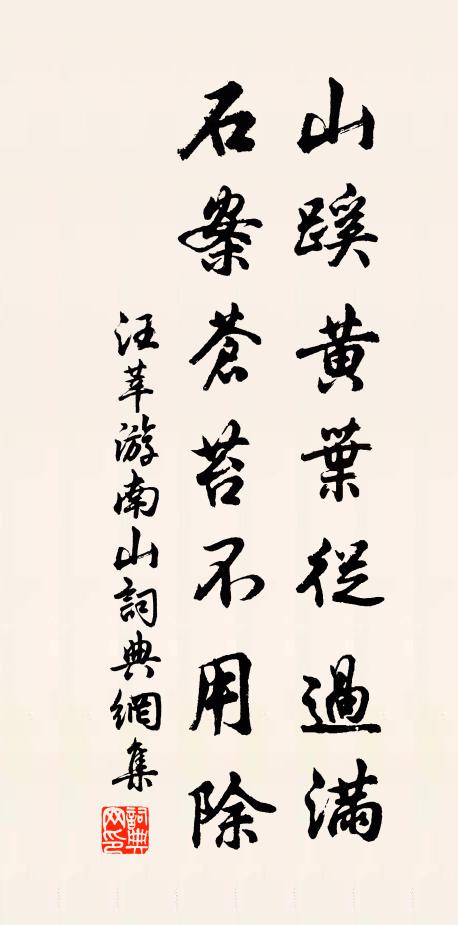 山蹊黃葉從過滿
石案蒼苔不用除
汪莘游南山詞典網集
詞典網印